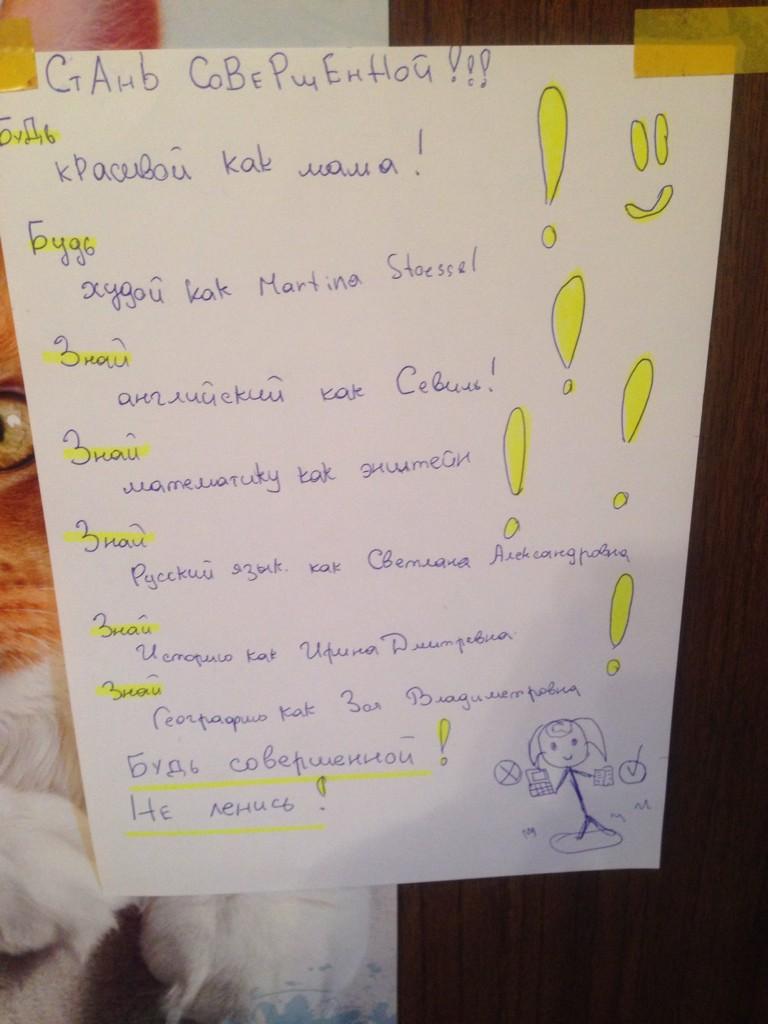 СтАнЬ СоВеРшЕнНой!!!
БуДь
кРасивой как мама!
Будь
худой как Martina Stoessel
Знай
английский как Севиль!
Знай
математику как энштейн
Знай
Русский язык. как Светлана Александровна
Знай
Историю как Ирина Дмитревна
Знай
Географию как Зоя Владиметровна
Будь совершенной!
Не ленись!